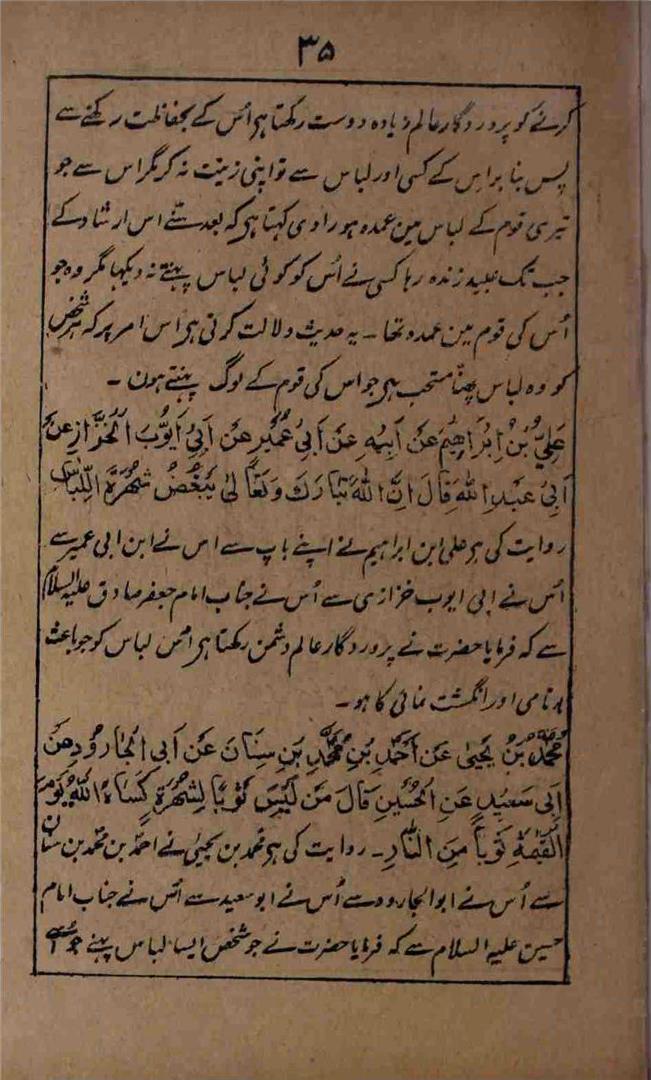 ۳۵
کرنے کو پروردگار عالم زیادہ دوست رکھتا ہی اُس کے بحفاظت رکھنے سے
پس بنا براس کے کسی اور لباس سے تو اپنی زینت نہ کر مگر اس سے جو
تیری قوم کے لباس مین عمدہ ہو راوی کہتا ہی کہ بعد سننے اس ارشاد کے
جب تک عبید زندہ رہا کسی نے اُس کو کوئی لباس پہنتے نہ دیکہا مگر وہ جو
اُس کی قوم مین عمدہ تھا ۔ یہ حدیث دلالت کرتی ہی اس امر پر کہ ہر شخص
کو وہ لباس پہننا مستحب ہی جو اس کی قوم کے لوگ پہنتے ہون ۔
عَلِيُّ بْنُ اِبْرَاهِيْمَ عَنْ اَبِيْهِ عَنْ اَبِيْ عُمَيْرٍ عَنْ اَبِيْ اَيُّوْبَ الْخَزَّازِ عَنْ
اَبِيْ عَبْدِ اللهِ قَالَ اِنَّ اللهَ تَبَارَكَ وَتَعَالٰى يُبْغِضُ شُهْرَةَ اللِّبَاسِ
روایت کی ہی علی ابن ابراہیم نے اپنے باپ سے اس نے ابن ابی عمیر سے
اُس نے ابی ایوب خزازی سے اُس نے جناب امام جعفر صادق علیہ السلام
سے کہ فرمایا حضرت نے پروردگار عالم دشمن رکھتا ہی اُس لباس کو جو باعث
بدنامی اور انگشت نمائی کا ہو ۔
مُحَمَّدُ بْنُ يَحْيٰى عَنْ اَحْمَدَ بْنِ مُحَمَّدِ بْنِ سِنَانَ عَنْ اَبِي الْجَارُوْدِ عَنْ
اَبِيْ سَعِيْدٍ عَنِ الْحُسَيْنِ قَالَ مَنْ لَبِسَ ثَوْبًا لِشُهْرَةٍ كَسَاهُ اللهُ يَوْمَ
الْقِيٰمَةِ ثَوْباً مِنَ النَّارِ ۔ روایت کی ہی محمد بن یحییٰ نے احمد بن محمد بن سنان
سے اُس نے ابو الجارود سے اُس نے ابو سعید سے اُس نے جناب امام
حسین علیہ السلام سے کہ فرمایا حضرت نے جو شخص ایسا لباس پہنے جو اُسے